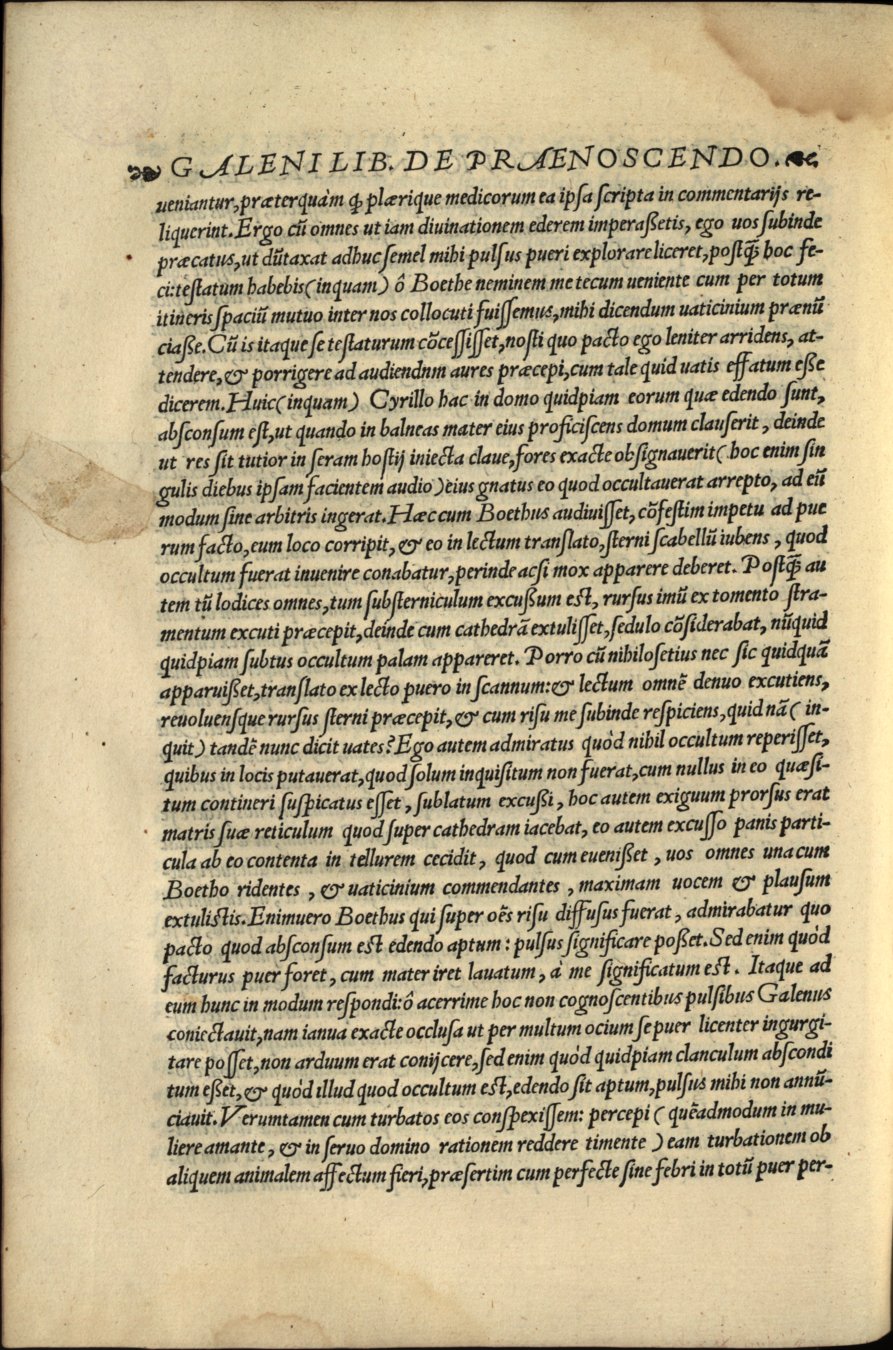 GALENI LIB. DE PRAENOSCENDO.
ueniantur, præterquàm ꝙ plærique medicorum ea ipsa scripta in commentarijs re-
liquerint. Ergo cũ omnes ut iam diuinationem ederem imperaßetis, ego uos subinde
præcatus, ut dũtaxat adhuc semel mihi pulsus pueri explorare liceret, postꝙ̃ hoc fe-
ci: testatum habebis (inquam) ô Boethe neminem me tecum ueniente cum per totum
itineris spaciũ mutuo inter nos collocuti fuissemus, mihi dicendum uaticinium prænũ
ciaße. Cũ is itaque se testaturum cõcessisset, nosti quo pacto ego leniter arridens, at-
tendere, & porrigere ad audiendnm aures præcepi, cum tale quid uatis effatum eße
dicerem. Huic (inquam) Cyrillo hac in domo quidpiam eorum quæ edendo sunt,
absconsum est, ut quando in balneas mater eius proficiscens domum clauserit, deinde
ut res sit tutior in seram hostij iniecta claue, fores exacte obsignauerit (hoc enim sin
gulis diebus ipsam facientem audio) eius gnatus eo quod occultauerat arrepto, ad eũ
modum sine arbitris ingerat. Hæc cum Boethus audiuisset, cõfestim impetu ad pue
rum facto, eum loco corripit, & eo in lectum translato, sterni scabellũ iubens, quod
occultum fuerat inuenire conabatur, perinde acsi mox apparere deberet. Postꝙ̃ au
tem tũ lodices omnes, tum substerniculum excußum est, rursus imũ ex tomento stra-
mentum excuti præcepit, deinde cum cathedrã extulisset, sedulo cõsiderabat, nũquid
quidpiam subtus occultum palam appareret. Porro cũ nihilosetius nec sic quidquã
apparuißet, translato ex lecto puero in scannum: & lectum omnẽ denuo excutiens,
reuoluensque rursus sterni præcepit, & cum risu me subinde respiciens, quid nã (in-
quit) tandẽ nunc dicit uates? Ego autem admiratus quòd nihil occultum reperisset,
quibus in locis putauerat, quod solum inquisitum non fuerat, cum nullus in eo quæsi-
tum contineri suspicatus esset, sublatum excußi, hoc autem exiguum prorsus erat
matris suæ reticulum quod super cathedram iacebat, eo autem excusso panis parti-
cula ab eo contenta in tellurem cecidit, quod cum euenißet, uos omnes una cum
Boetho ridentes, & uaticinium commendantes, maximam uocem & plausum
extulistis. Enimuero Boethus qui super oẽs risu diffusus fuerat, admirabatur quo
pacto quod absconsum est edendo aptum: pulsus significare poßet. Sed enim quòd
facturus puer foret, cum mater iret lauatum, à me significatum est. Itaque ad
eum hunc in modum respondi: ô acerrime hoc non cognoscentibus pulsibus Galenus
coniectauit, nam ianua exacte occlusa ut per multum ocium se puer licenter ingurgi-
tare posset, non arduum erat conijcere, sed enim quòd quidpiam clanculum abscondi
tum eßet, & quòd ıllud quod occultum est, edendo sit aptum, pulsus mihi non annũ-
ciauit. Verumtamen cum turbatos eos conspexissem: percepi (quẽadmodum in mu-
liere amante, & in seruo domino rationem reddere timente) eam turbationem ob
aliquem animalem affectum fieri, præsertim cum perfecte sine febri in totũ puer per-